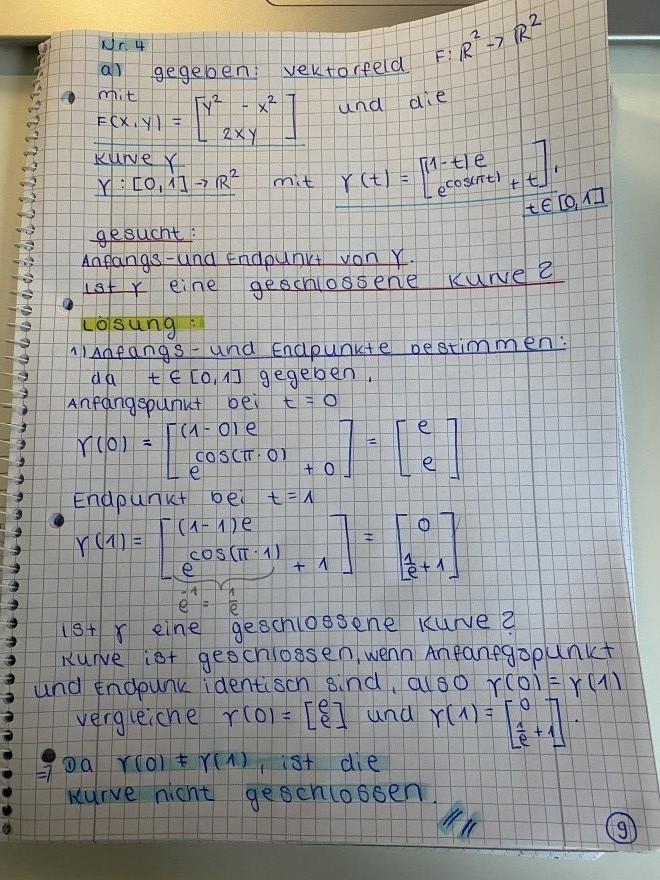 Nr. 4
a) gegeben: Vektorfeld F: ℝ² → ℝ²
mit
F(x,y) = [y² - x² ; 2xy] und die
Kurve γ
γ: [0,1] → ℝ² mit γ(t) = [(1-t)e ; e^cos(πt) + t],
t ∈ [0,1]
gesucht:
Anfangs- und Endpunkt von γ.
ist γ eine geschlossene Kurve?
Lösung:
1) Anfangs- und Endpunkte bestimmen:
da t ∈ [0,1] gegeben,
Anfangspunkt bei t = 0
γ(0) = [(1-0)e ; e^cos(π·0) + 0] = [e ; e]
Endpunkt bei t = 1
γ(1) = [(1-1)e ; e^cos(π·1) + 1] = [0 ; 1/e + 1]
e^-1 = 1/e
ist γ eine geschlossene Kurve?
Kurve ist geschlossen, wenn Anfanfgspunkt
und Endpunk identisch sind, also γ(0) = γ(1)
vergleiche γ(0) = [e ; e] und γ(1) = [0 ; 1/e + 1].
⇒ Da γ(0) ≠ γ(1), ist die
Kurve nicht geschlossen.
9